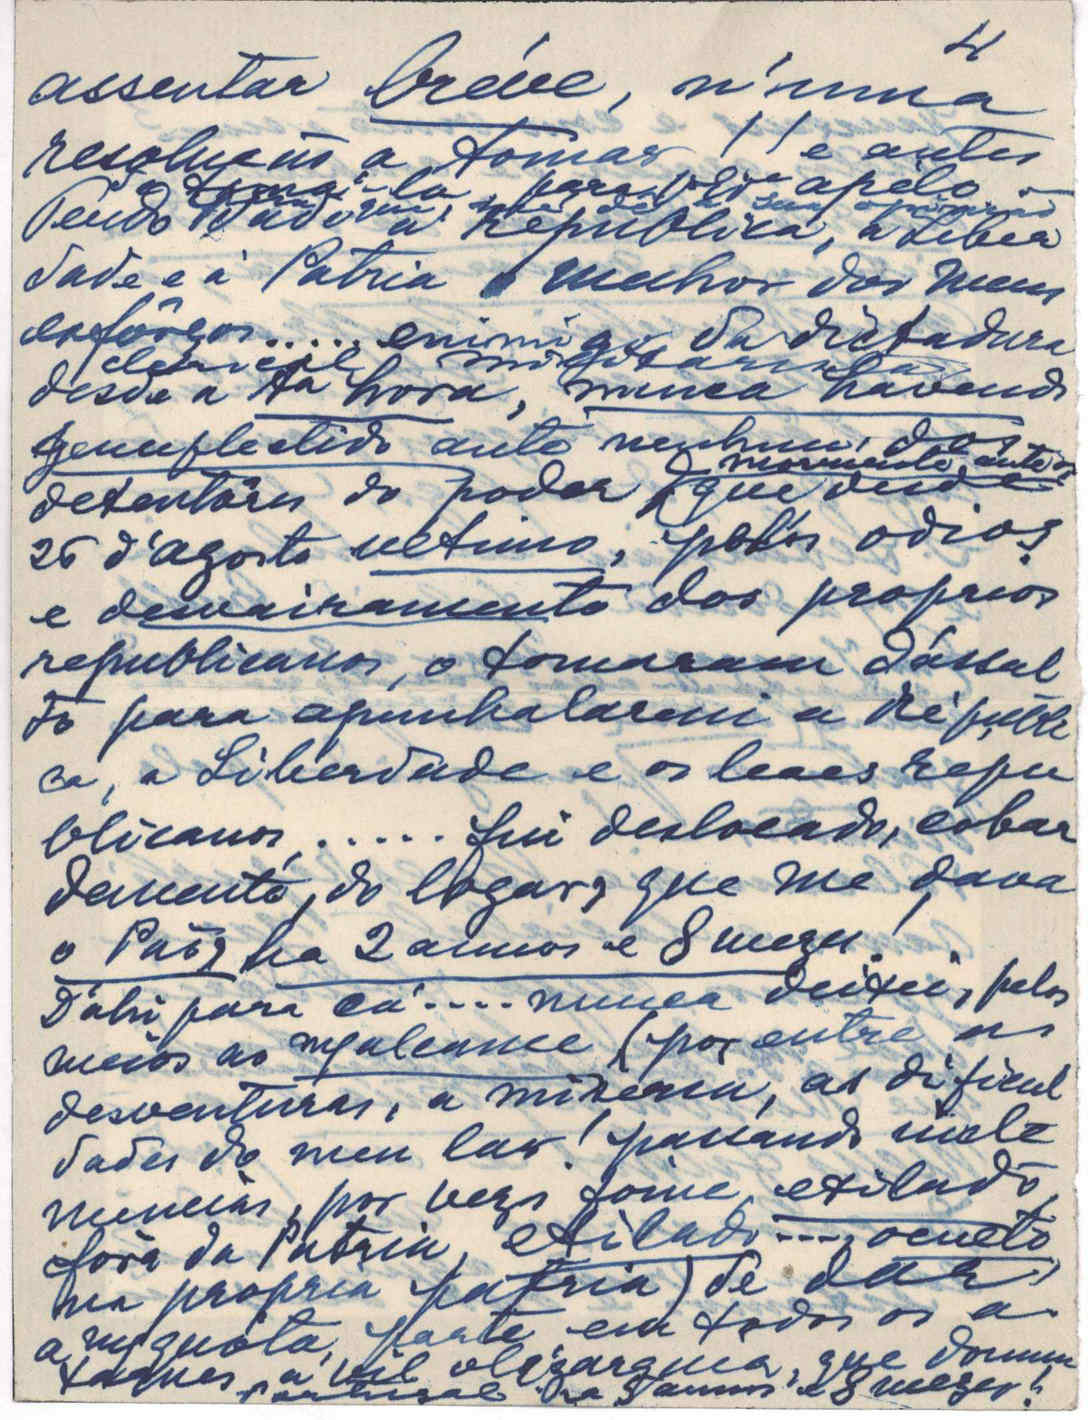 4
assentar bréve, n'uma
resolução a tomar!! e antes
de tomá-la, para isso apélo -
Tendo dado á Republica, á Liber
dade e á Patria o melhor dos meus
esfôrços..... enimigo da dictadura
clerical militarista
desde a 1ª hora, nunca havendo
genuflectido ante nenhum dos
mormente, ante os
detentôres do poder, que desde
26 d'agosto ultimo, pelos odios
e desvairamento dos proprios
republicanos, o tomaram d'assal
to para apunhalarem a Républi
ca, a Liberdade e os leaes repu
blicanos,..... fui deslocado, cobar
demente, do logar, que me dava
o Pão, ha 2 annos e 8 mezes!
D'ahi para cá.... nunca deixei, pelos
meios ao m/alcance (por entre as
desventuras, a miseria, as dificul
dades do meu lar! passando incle
mencias, por vezes fome, exilado,
fóra da Patria, exilado...., oculto
na propria patria) de dar,
a m/quóta, parte em todos os a
taques a vil oligarquia, que domina
Portugal ha 5 annos e 8 mezes!